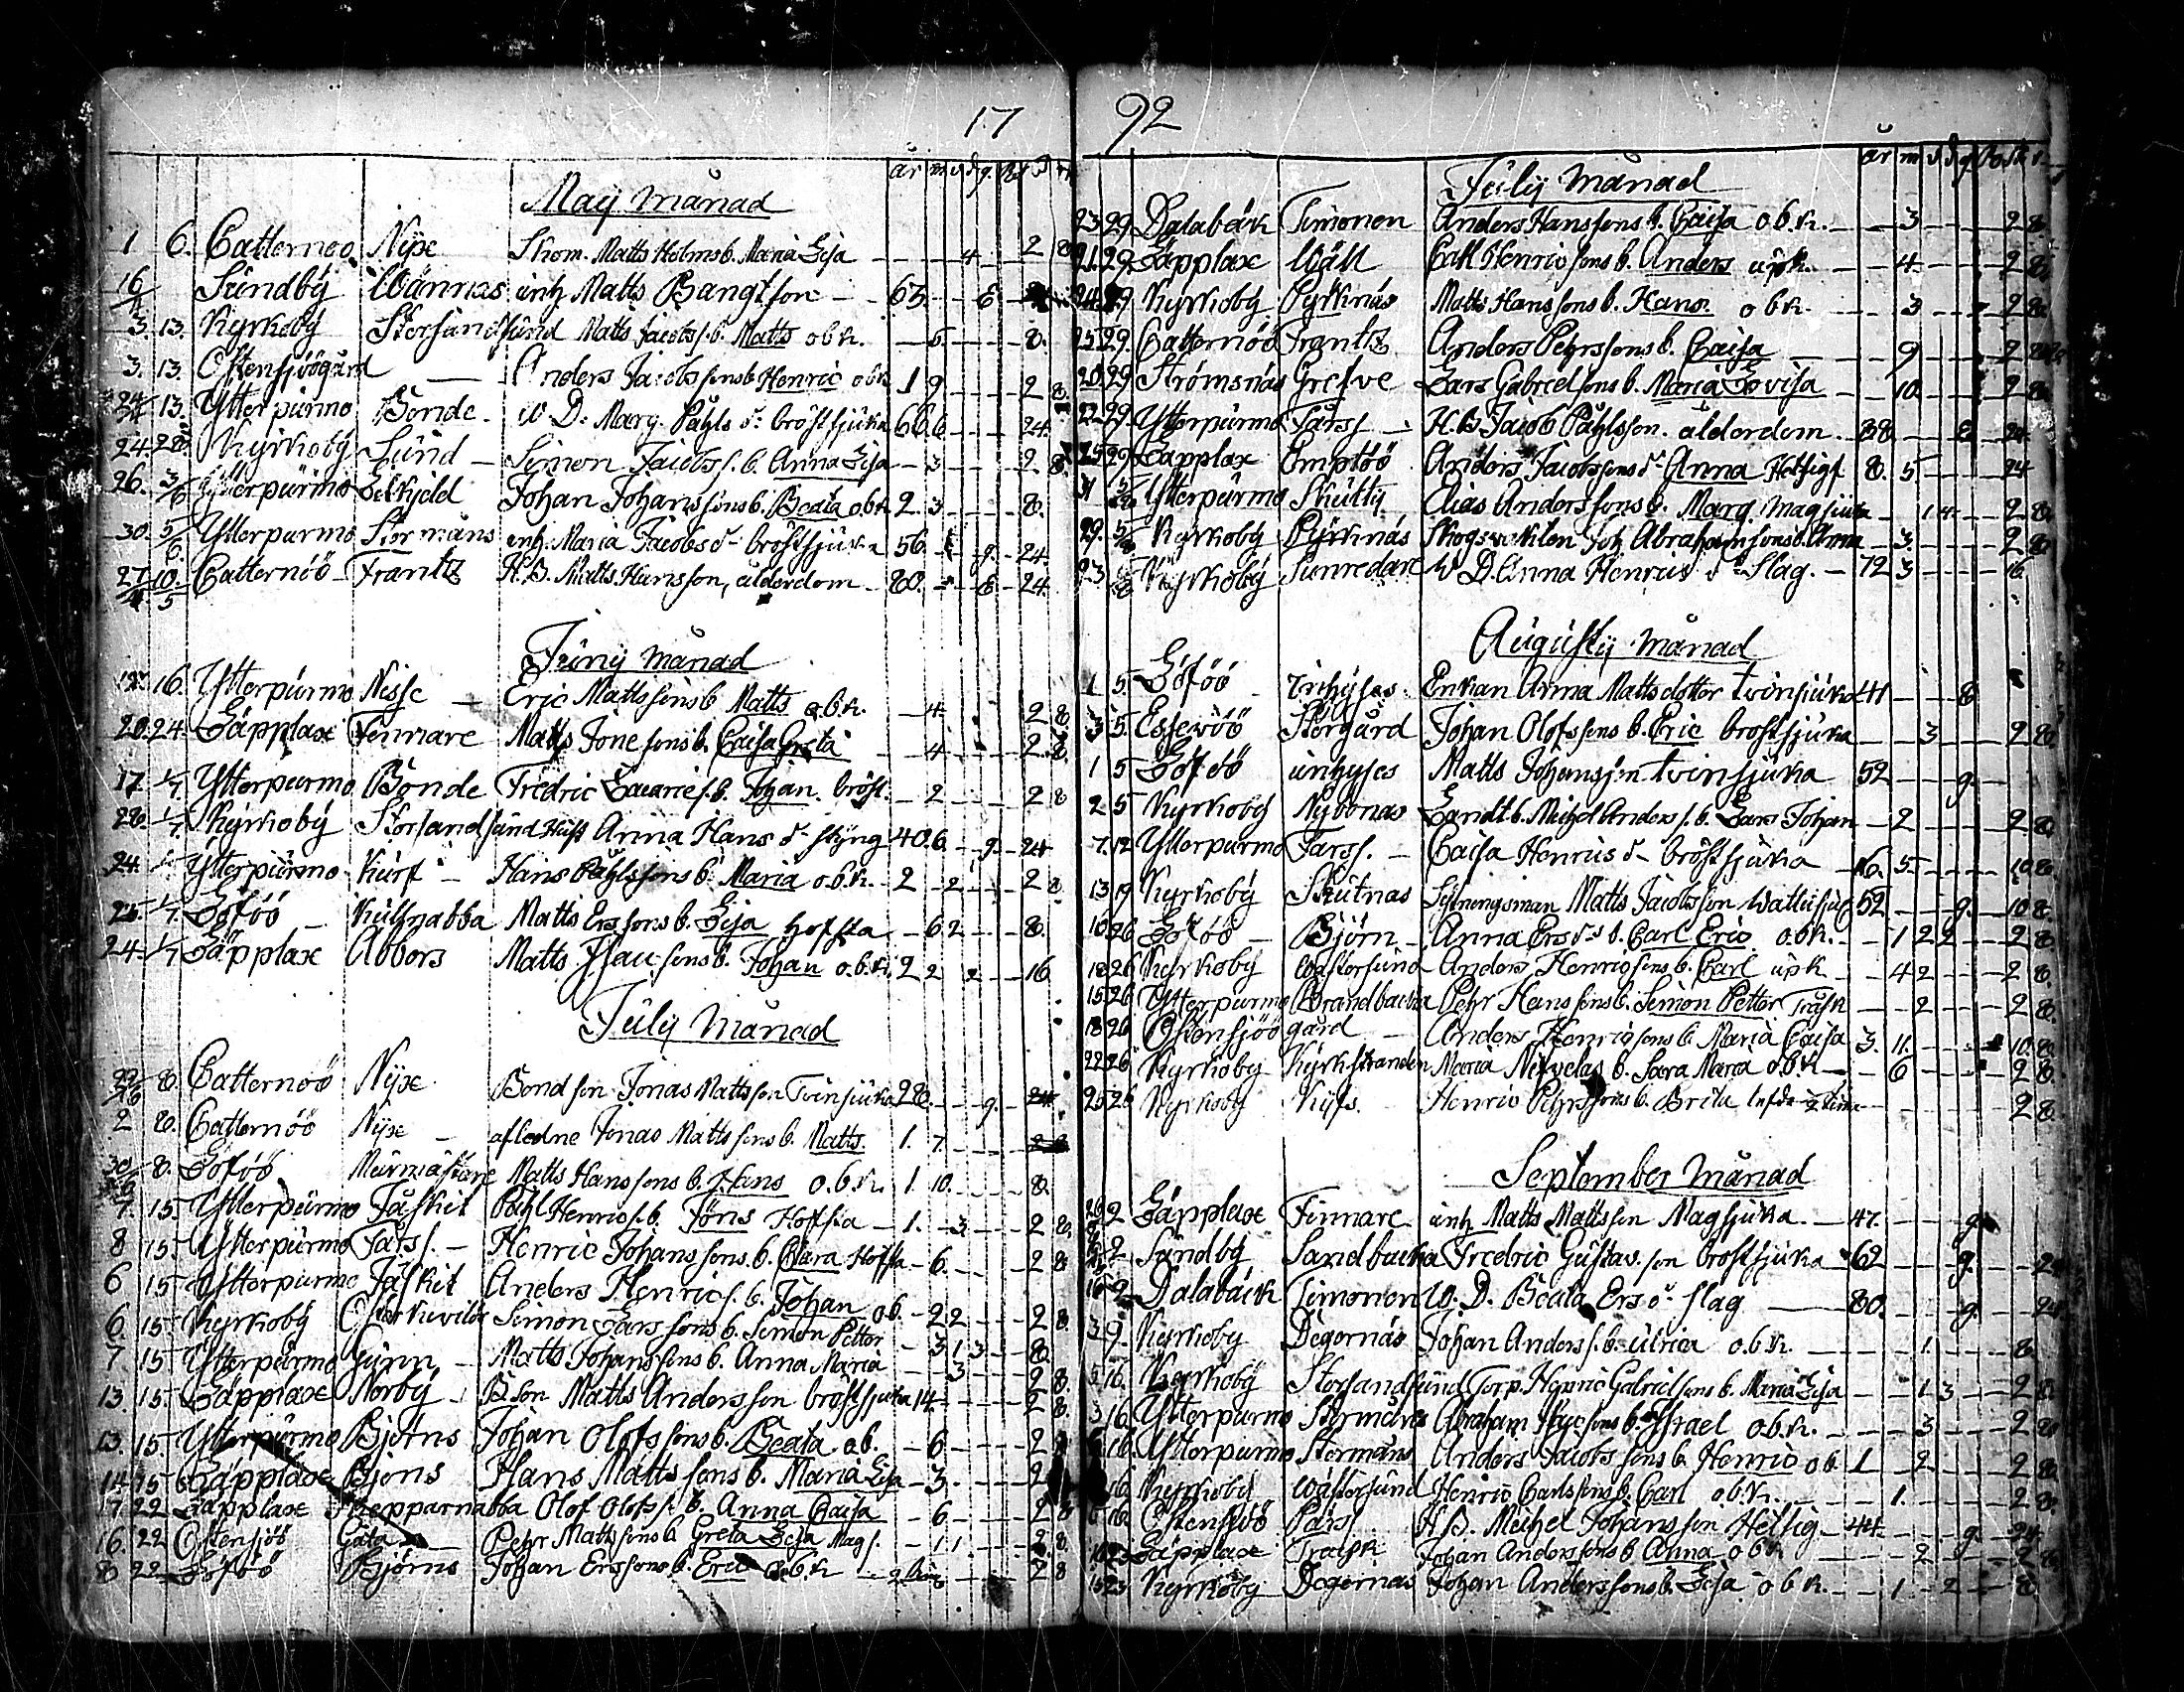 17
år m v d g
Maij månad
1 6. Catternöö Nijse Skom. Matts Holms b. Maria Lisa 4 2 8
16/4 Sundbÿ Wännas inh Matts Bangtson 63 g
3. 13. Kÿrkobÿ Storsandsund Matts Jacobs s. b. Matts obk. 6 8.
3. 13. Östensjöögård Anders Jacobssons b Henric obk 1 9 2 8.
24/4 13. Ytterpurmo Bonde W. D. Marg. Påhls dr bröstsjuka 66 6 24.
24. 28 Kÿrkobÿ Lund Simon Jacobs s. b. Anna Lisa 3 2 8
26. 3/6 Ytterpurmo Johan Johans sons b. Beata obk 2 3 8.
30. 5/6. Ytterpurmo Stormåns inh. Maria Jacobs dr bröstsjuka 56 g. 24.
27/4 10/5 Catternöö Frantz H. B. Matts Hansson, ålderdom 80. g 24
Junij månad
12 16. Ytterpurmo Nisse Eric Mattssons b Matts o.b.k. 4 2 8
20. 24. Läpplax Finnare Matts Jönssons b. Caisa Greta 4 2 8.
17. 1/7. Ytterpurmo Bonde Fredric s. b. Johan bröst. 2 2 8
28. 1/7. Kÿrkobÿ Storsandsund Hust Anna Hans dr styng 40. 6 g 24
24. 1/7 Ytterpurmo Kurf Hans Påhlssons b. Maria o.b.k. 2 2 2 8
25. 1/7. Löföö Kullnabba Matts Erssons b. Lisa hossta 6 2 8.
24. 1/7 Läpplax Abbors Matts Isacsons b. Johan o.b.k. 2 2 2 16
Julij Månad
22/6 8. Catternöö Nijse Bondson Jonas Mattsson Tvinsjuka 28. g. 24
2 8. Catternöö Nijse afledne Jonas Mattssons b. Matts 1. 7.
30/6 8. Löföö Murmästare Matts Hanssons b. Hans o.b.k. 1. 10. 8.
7. 15. Ytterpurmo Fåskit Påhl Henrics. b. Föns Hossta 1. 3 2 8.
8 15. Ytterpurmo Fars s. Henric Johanssons b. Clara Hossta 6. 2 8
6 15 Ytterpurmo Fåskit Anders Henrics. b. Johan ob. 2 2 2 8.
6. 15. Kÿrkobÿ Simon Larssons b. Simon Petter 3 1 3 8.
7 15 Ytterpurmo Gunn Matts Johanssons b. Anna Maria 3 2 8.
13. 15. Läpplax Norbÿ Bson Matts Andersson bröstsjuka 14. 2 8.
13. 15 Ytterpurmo Bjorns Johan Olofssons b. Beata ob. 6 2 8
14 15 Läpplax Bjons Hans Mattssons b. Maria Lisa 3. 2
17 22 Läpplax Olof Olofs s. b. Anna Caisa 6 2 8
16. 22 Östensjöö Gata Pehr Mattssons b Greta Lisa Mags. 1 1 2 8.
8 22 Löföö Bjorns Johan Erssons b. Eric o.b.k 2 8
92
år m
Julij månad
23 29. Dalabäck Timonen Anders Hanssons b. Caisa o.b.k. 3 2 8
21. 29. Läpplax Wäll Carl Henricsons b. Anders upk. 4 2 8.
29 Kÿrkobÿ Pÿrknäs Matts Hanssons b. Hans. obk. 3 2 8.
25 29. Catternöö Frantz Anders Pehrssons b. Caisa 9 2
20. 29 Strömsnäs Grefve Lars Gabrielsons b. Maria Lovisa 10. 2 8.
22 29. Ytterpurmo Fars s H. B Jacob Påhlsson. ålderdom 88 g 24
25 29. Läpplax Emptöö Anders Jacobssons dr Anna Hetsigf 8. 5 24
31 Ytterpurmo Skutti Elias Anderssons b. Marg. magsjuka 1 4 2 8.
29. 5/8 Kÿrkobÿ Pÿrknäs Skogsvaktén Joh Abrahamsons b. Anna 3. 2 8.
23 Kÿrkobÿ Sunredare W. D. Anna Henrics dr Slag. 72 3 16
Augustij månad
1 5. Löföö inhÿses Enkan Anna Mattsdotter tvinsjuka 41 g
3 5. Esseröö Storgård Johan Olofssons b. Eric bröstsjuka 3 2 8.
1 5 Löföö inhÿses Matts Johansson tvinsjuka 52 g.
2 5 Kÿrkobÿ Nÿbonas Landtb. Michel Anders s. b. Lars Johan 2 2 8
7. 12 Ytterpurmo Fars s. Caisa Henrics dr bröstsjuka 16. 5. 10 8.
13 19 Kÿrkobÿ Skutnas Sÿtningsman Matts Jacobsson wattusjuk 52 g. 10 8.
10 26 Löföö Björn Anna Ers dr s b. Carl Eric o.b.k. 1 2 2 2 8
12 26 Kÿrkobÿ Wästersund Anders Henricsons b. Carl upk 4 2 2 8.
15 26 Ytterpurmo Brandbacka Pehr Hanssons b. Simon Petter Trask 2 2 8.
18 26 Östensjöögård Anders Henricsons b. Maria Caisa 3. 11. 10. 8.
22 26 Kÿrkobÿ Kÿrkstranden Maria b. Sara Maria obk 6 2 8.
25 26 Kÿrkobÿ Henric Pehrssons b. Brita lefde 2 8.
September månad
26/8 2 Läpplax Finnare inh Matts Mattsson Magsjuka. 47. g.
2 Sandbÿ Sandbacka Fredric Gustavson bröstsjuka 62 g. 24
2 Dalabäck Timonen W. D. Beata Ers dr slag 80. g. 24.
3 9 Kÿrkobÿ Degernäs Johan Anders s. b. Ulrica o.b.k. 1. 8.
5 16. Kÿrkobÿ Storsandsund Torp. Henric Gabrielsons b. Maria Lisa 1 3 2 8
3 16. Ytterpurmo Stormåns Abraham Isacsons b. Israel o.b.k. 3 2 8
16. Ytterpurmo Stormåns Anders Jacobssons b. Henric ob 1 2 2 8
16. Kÿrkobÿ Wästersund Henric Carlssons b. Carl o.b.k. 1. 2 8.
16. Östensjöö Pars s H. B. Michel Johansson Hetsig 44. g. 24.
23 Läpplax Trask Johan Anderssons b Anna o b k 2 2 8
15 23 Kÿrkobÿ Degernäs Johan Anderssons b. Lisa o b k. 1 2 8.